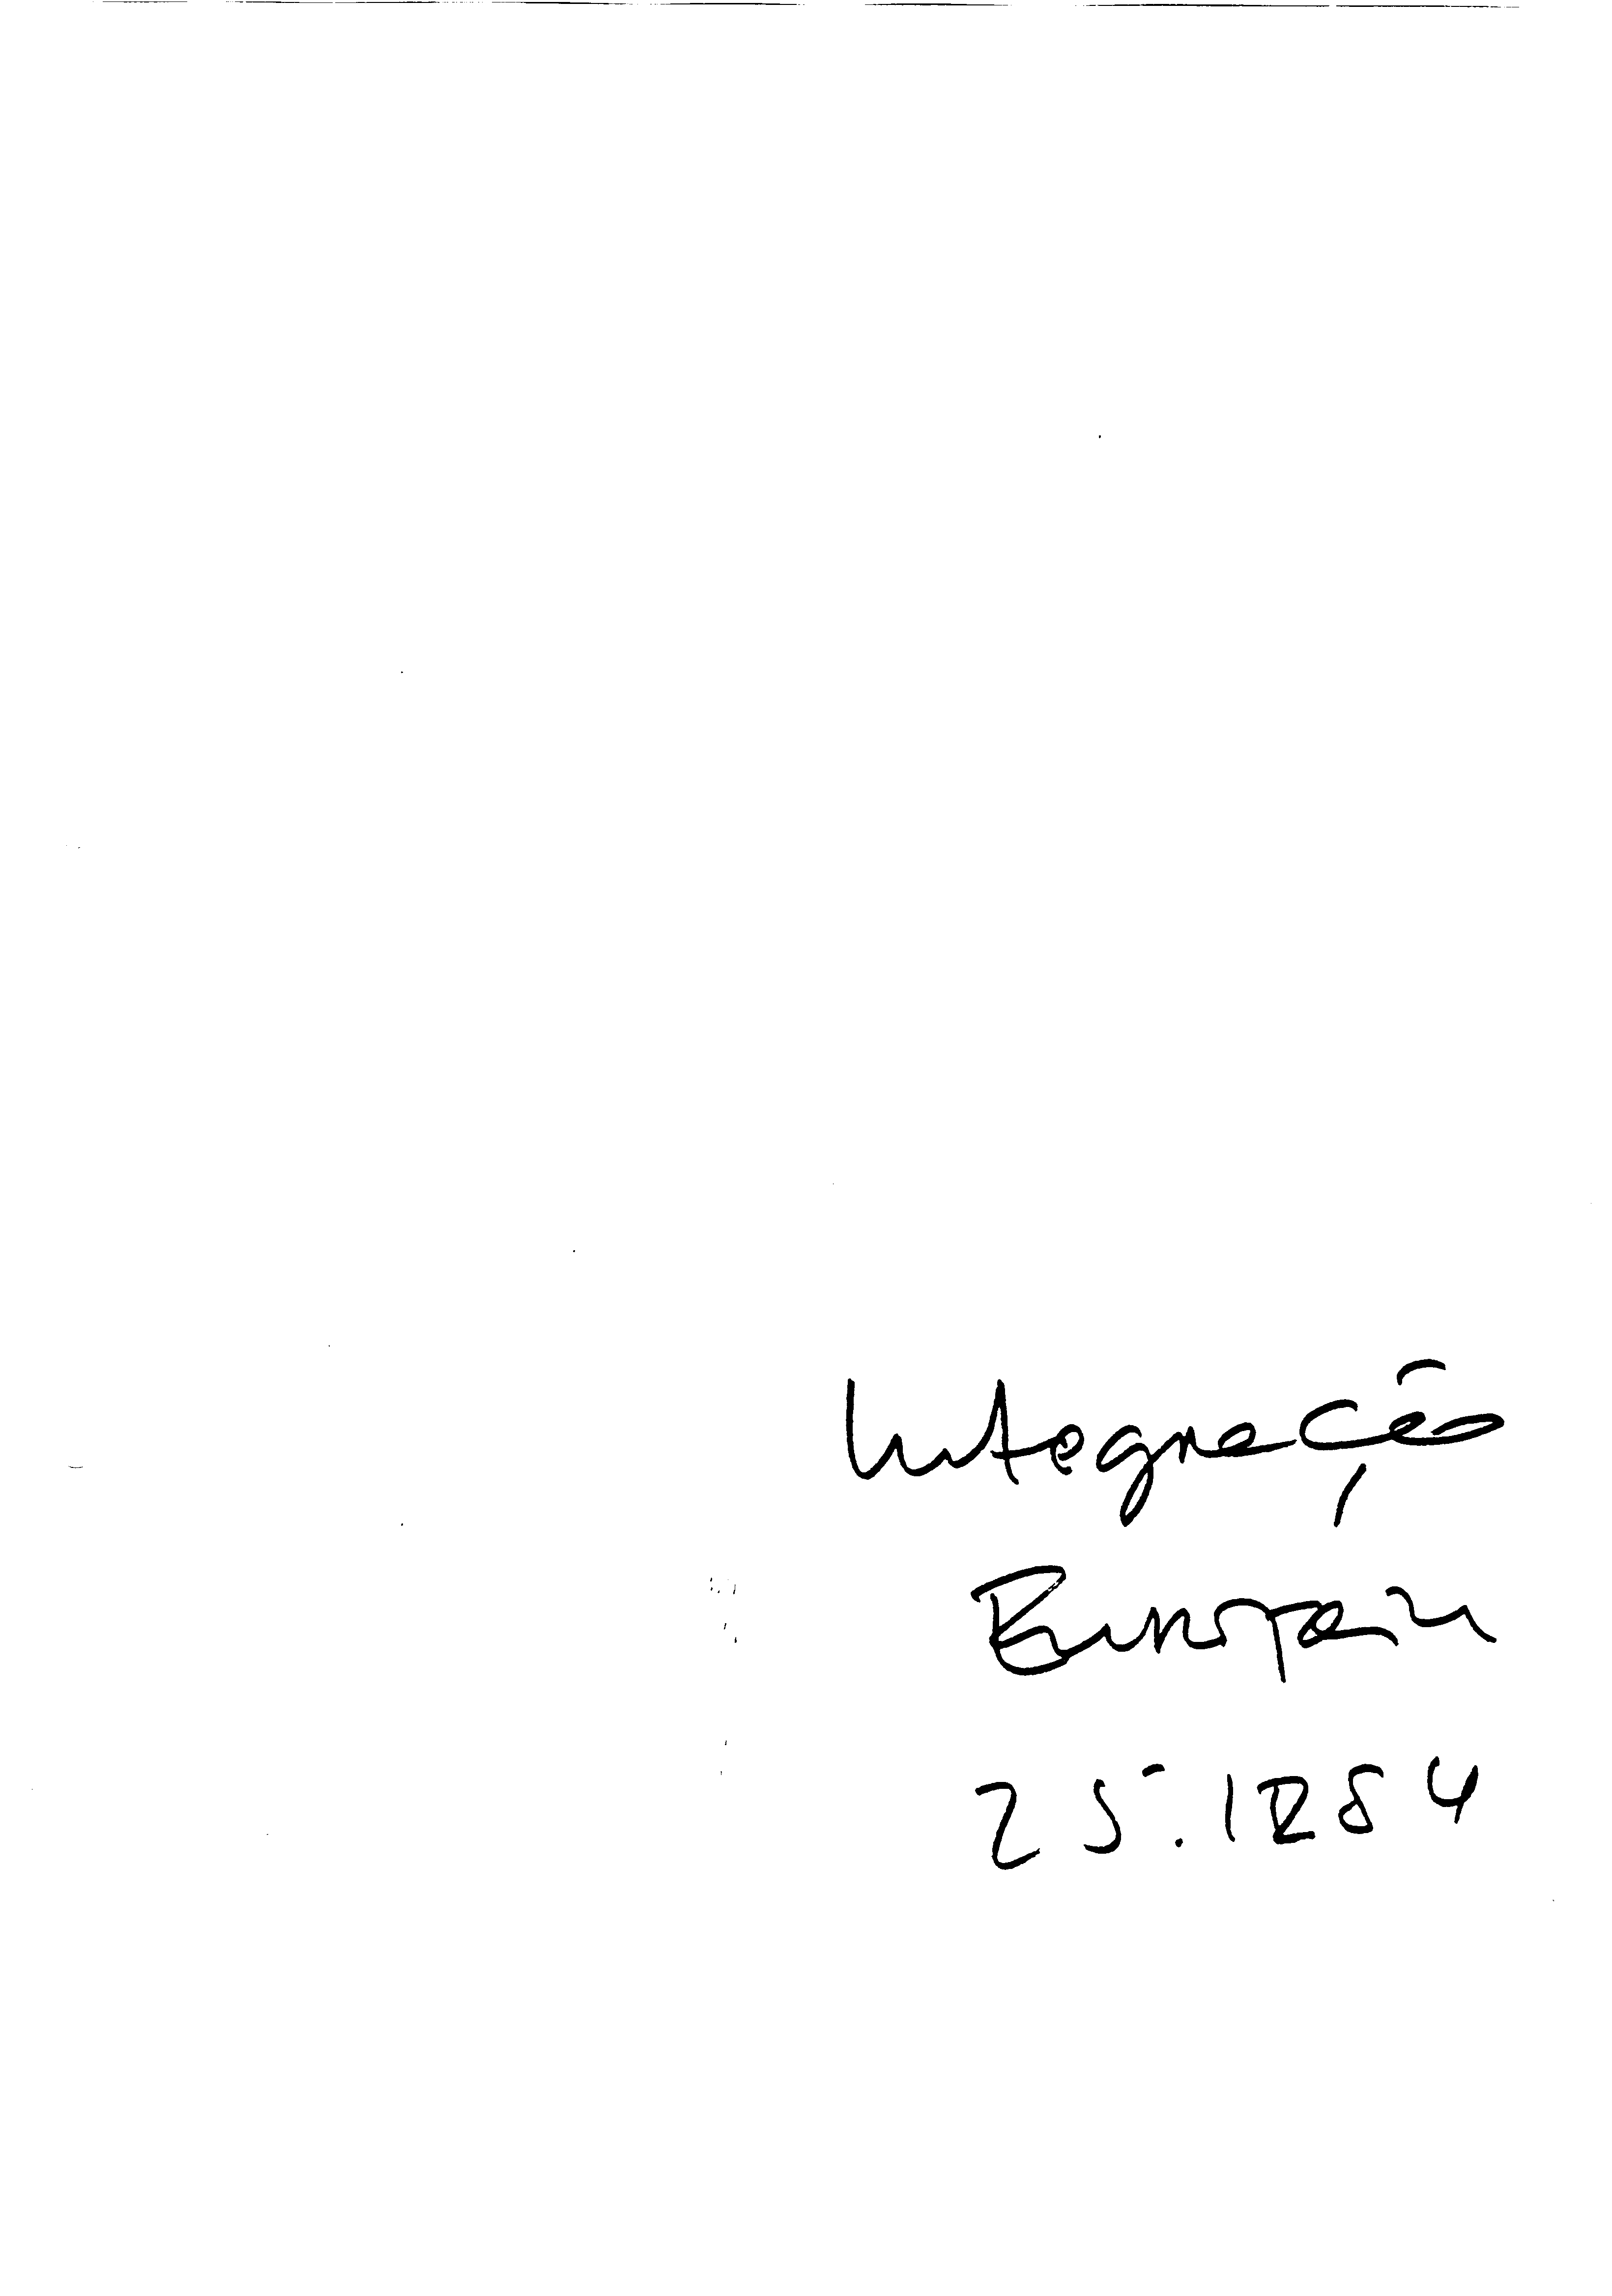 Integração
Europeia
25.1284